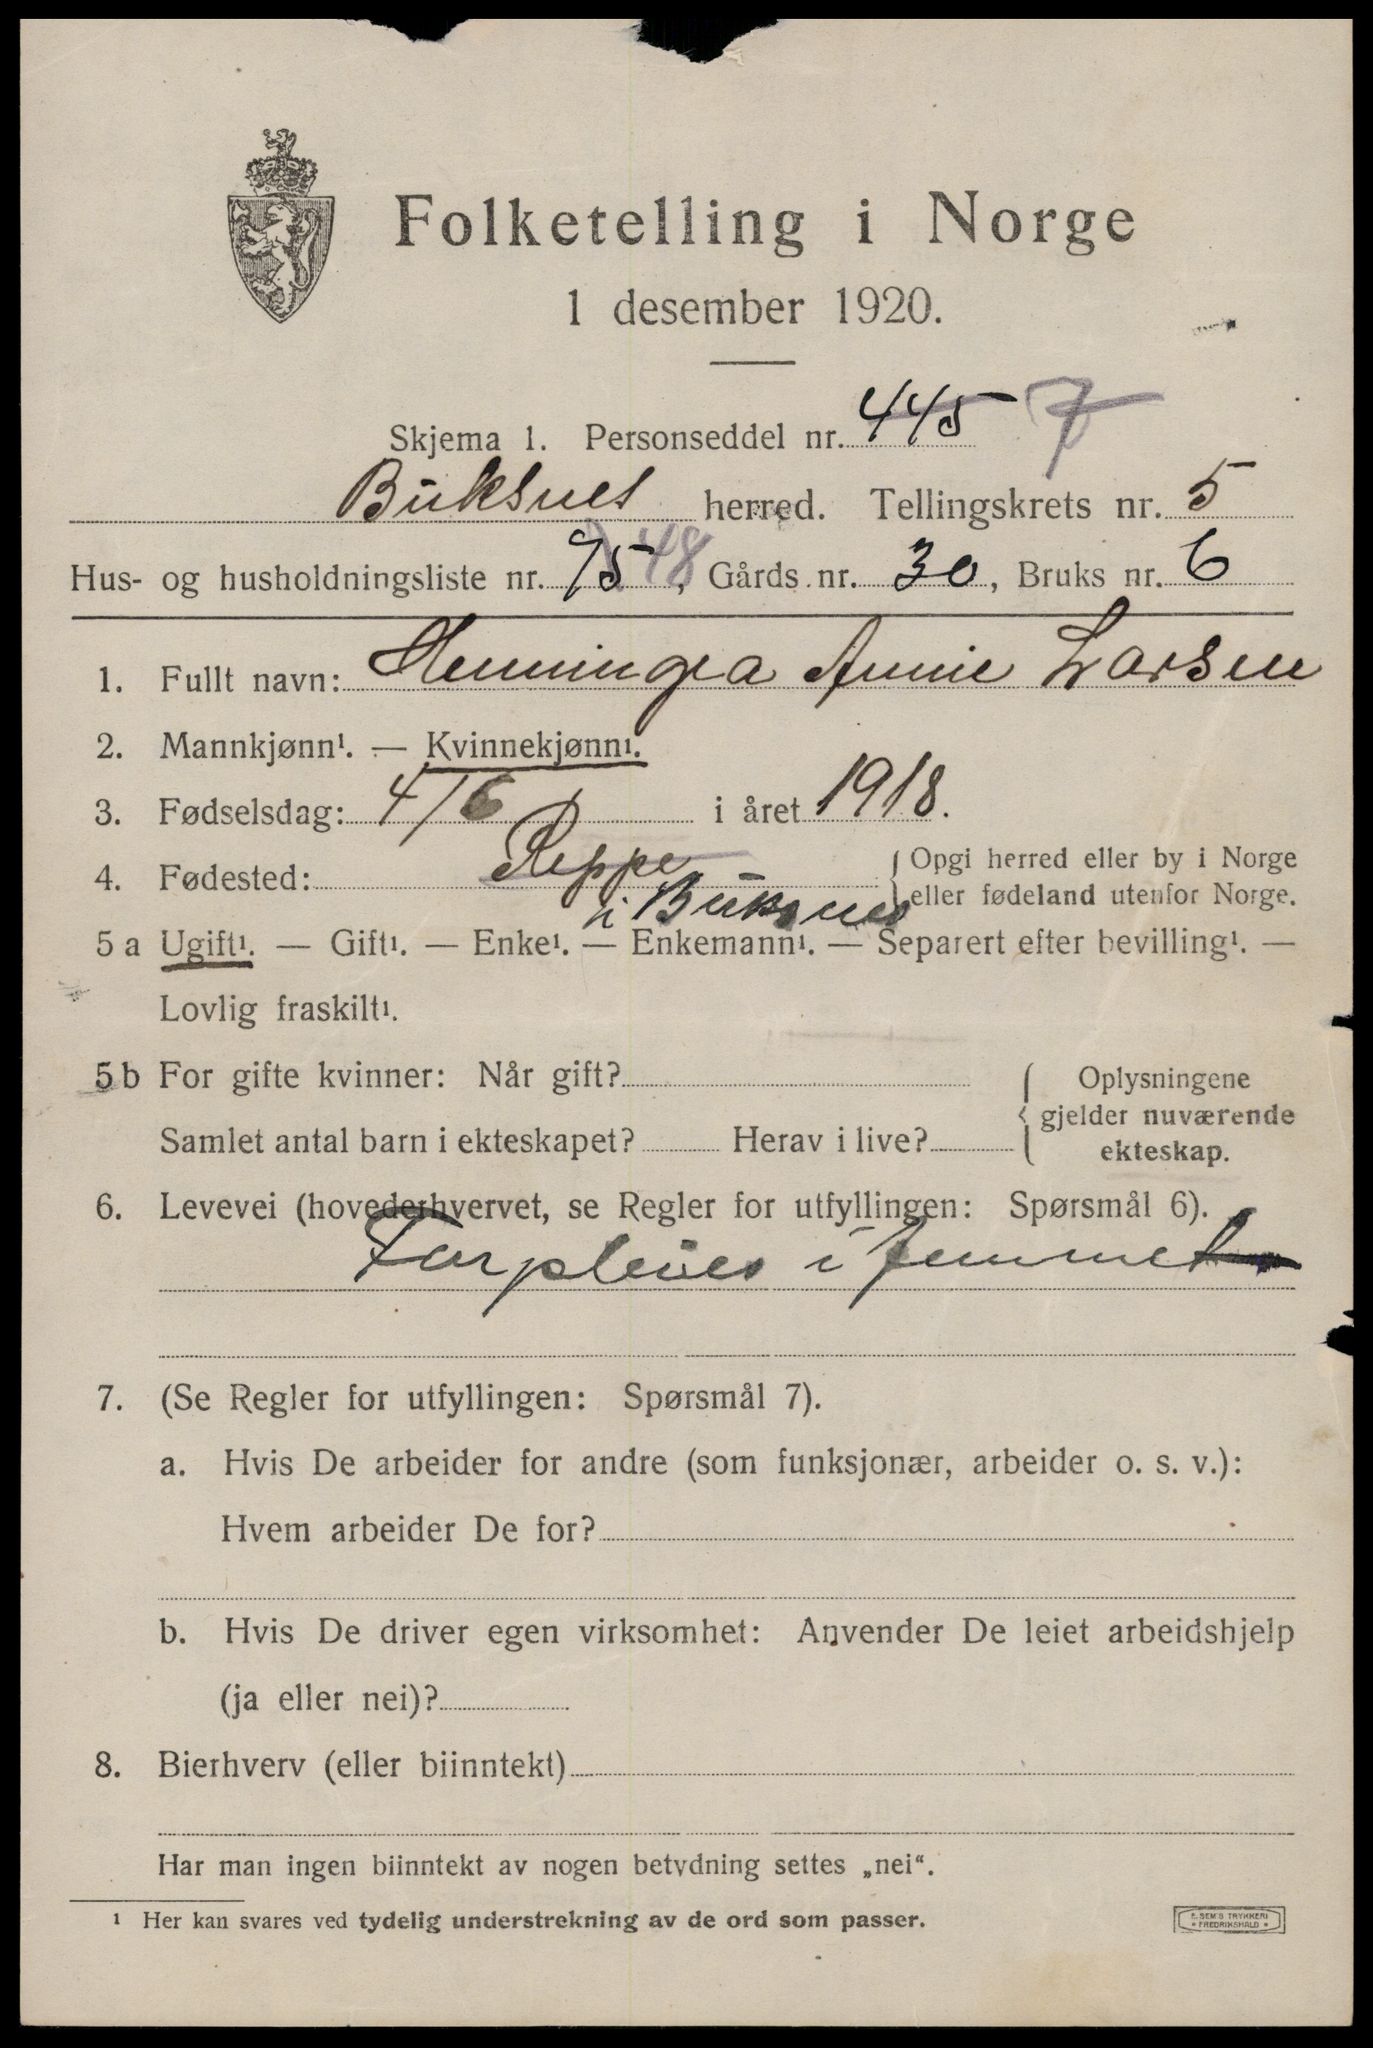 Folketelling i Norge
1 desember 1920.
Skjema 1. Personseddel nr. 445 7
Buksnes herred. Tellingskrets nr. 5
Hus- og husholdningsliste nr. 75 48, Gårds nr. 30, Bruks nr. 6
1. Fullt navn: Henningea Annie Larsen
2. Mannkjønn¹. — Kvinnekjønn¹.
3. Fødselsdag: 4/6 i året 1918.
4. Fødested: Reppe { Opgi herred eller by i Norge
i Buksnes eller fødeland utenfor Norge.
5 a Ugift¹. — Gift¹. — Enke¹. — Enkemann¹. — Separert efter bevilling¹. —
Lovlig fraskilt¹.
5 b For gifte kvinner: Når gift? { Oplysningene
gjelder nuværende
Samlet antal barn i ekteskapet? Herav i live? ekteskap.
6. Levevei (hovederhvervet, se Regler for utfyllingen: Spørsmål 6).
Forpleies i jemmet
7. (Se Regler for utfyllingen: Spørsmål 7).
a. Hvis De arbeider for andre (som funksjonær, arbeider o. s. v.):
Hvem arbeider De for?
b. Hvis De driver egen virksomhet: Anvender De leiet arbeidshjelp
(ja eller nei)?
8. Bierhverv (eller biinntekt)
Har man ingen biinntekt av nogen betydning settes „nei“.
¹ Her kan svares ved tydelig understrekning av de ord som passer.
E. SEM'S TRYKKERI
* FREDRIKSHALD *